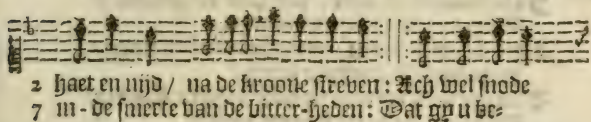 2 haet en nijd / na de kroone streben : Ach wel snode
7 in - de smerte van de bitter-heden : Dat gy u be-